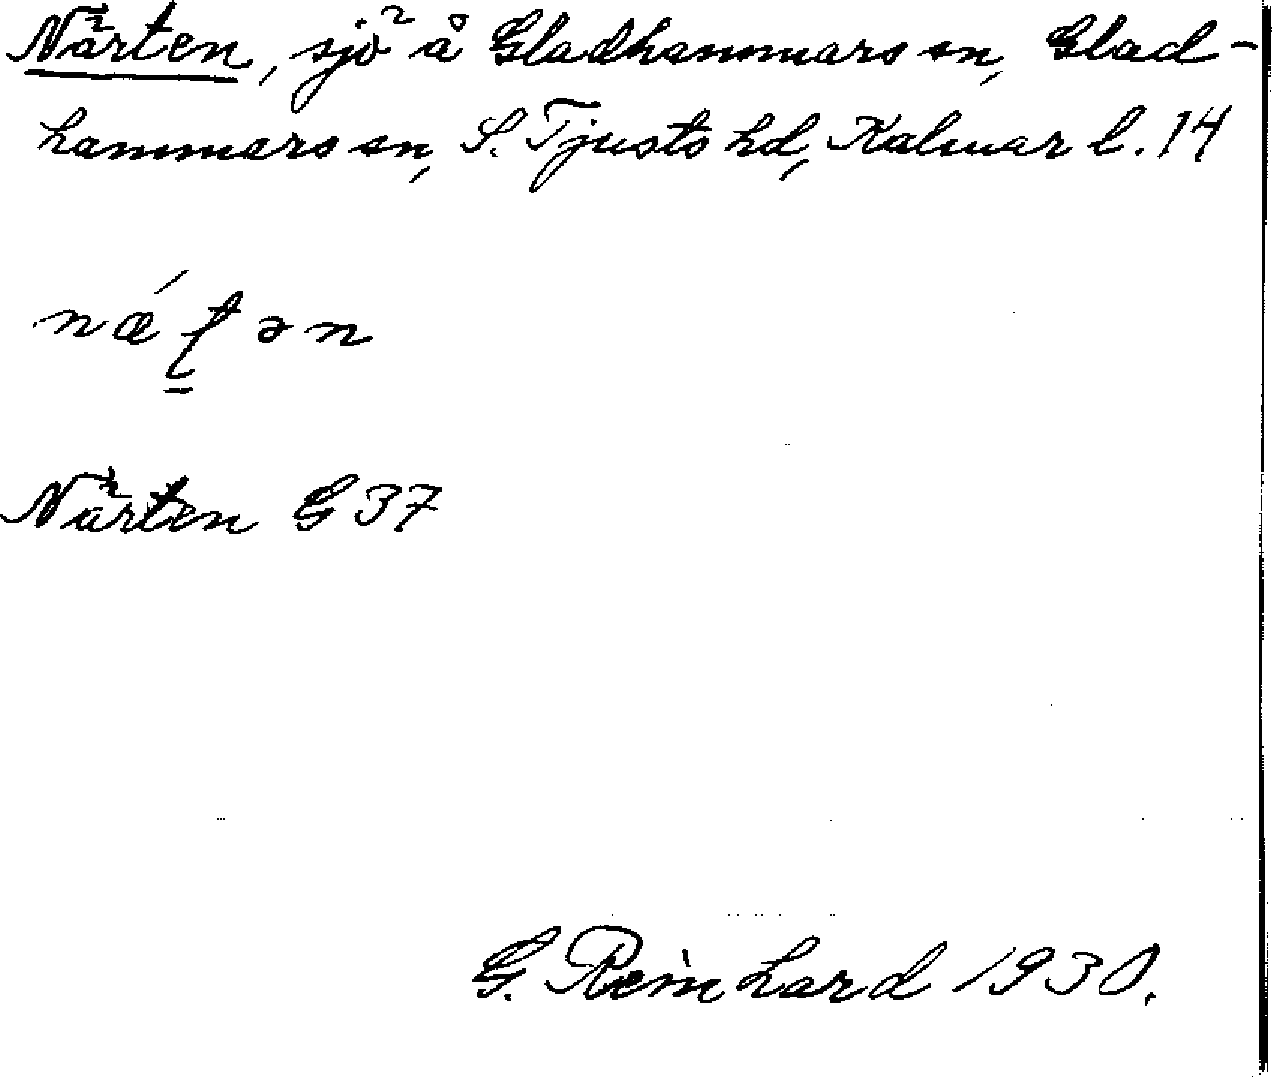 Närten, sjö å Gladhammars sn, Glad-
hammars sn, S. Tjusts hd, Kalmar l. 14
næ´ʈən
Närten G 37
G. Reinhard 1930.